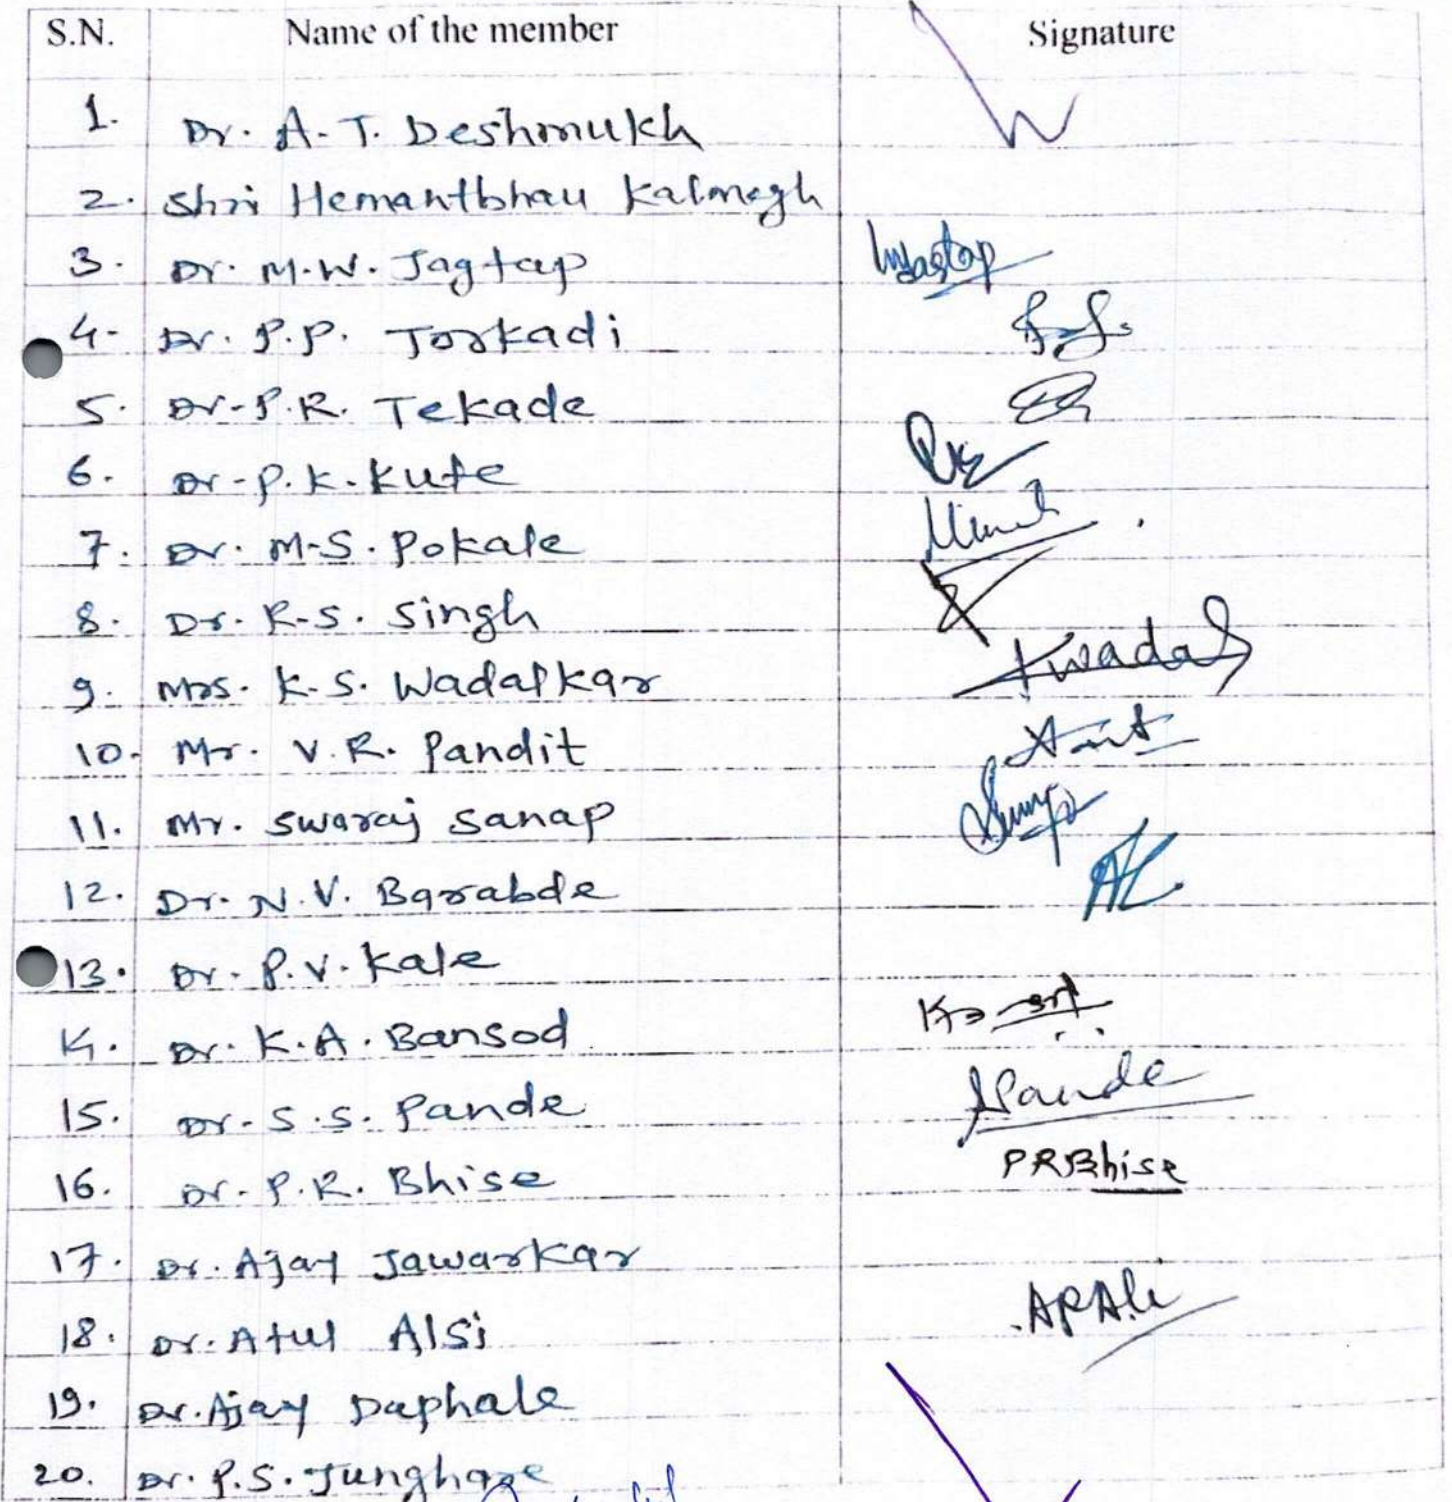 S.N. Name of the member Signature
1. Dr. A.T. Deshmukh
2. Shri Hemantbhau Kalmegh
3. Dr. M.W. Jagtap
4. Dr. P.P. Torkadi
5. Dr. P.R. Tekade
6. Dr. P.K. Kute
7. Dr. M.S. Pokale
8. Dr. R.S. Singh
9. Mrs. K.S. Wadalkar Kwada
10. Mr. V.R. Pandit
11. Mr. Swaraj Sanap
12. Dr. N.V. Barabde
13. Dr. P.V. Kale
14. Dr. K.A. Bansod
15. Dr. S.S. Pande Pande
16. Dr. P.R. Bhise PRBhise
17. Dr. Ajay Jawarkar
18. Dr. Atul Alsi
19. Dr. Ajay Daphale
20. Dr. P.S. Junghare